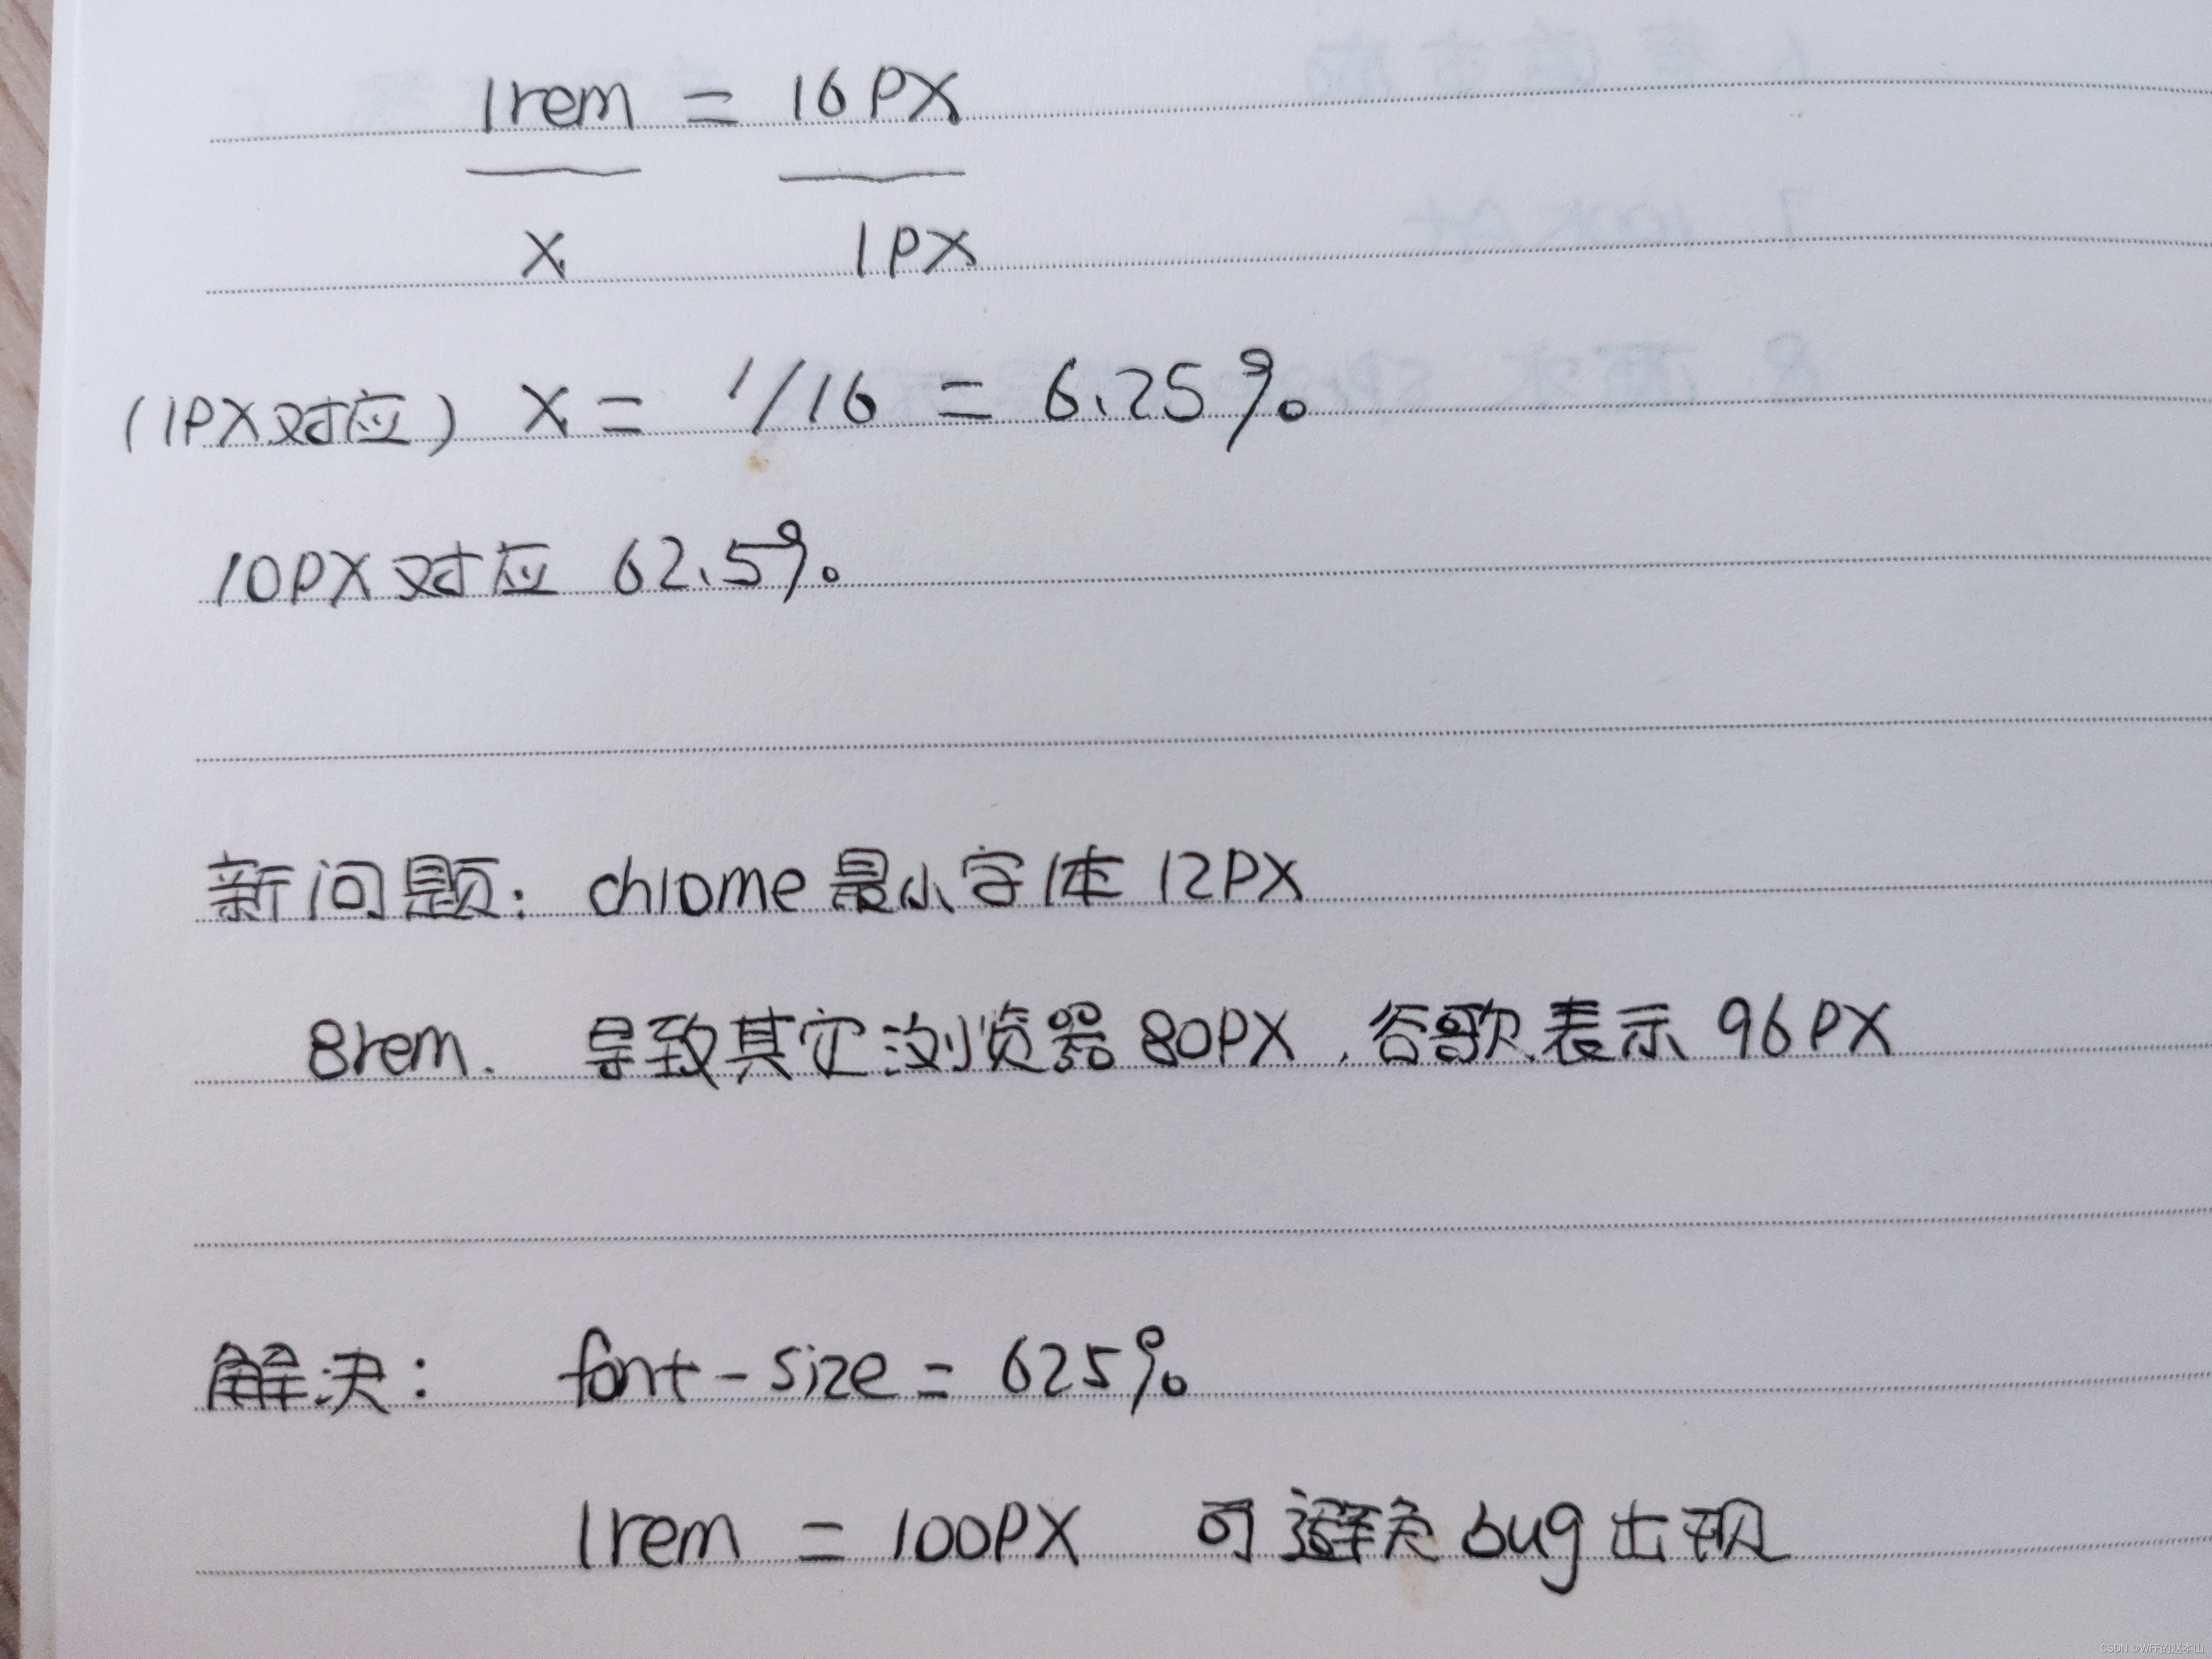 1rem = 16PX
X 1PX
(1PX对应) X = 1/16 = 6.25%
10PX对应 62.5%
新问题: chrome最小字体 12PX
8rem. 导致其它浏览器80PX,谷歌表示96PX
解决: font-size = 625%
1rem = 100PX 可避免bug出现